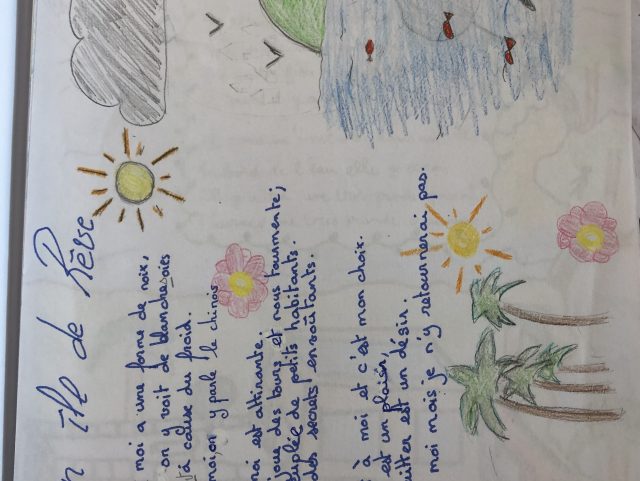 n île de Rêve
moi a une forme de noix,
on y voit de blanches oies
à cause du froid.
moi on y parle le chinois
est attirante.
joue des tours et nous tourmente;
de petits habitants.
des secrets envoûtants.
à moi et c'est mon choix.
est un plaisir,
est un désir.
moi mais je n'y retournerai pas.